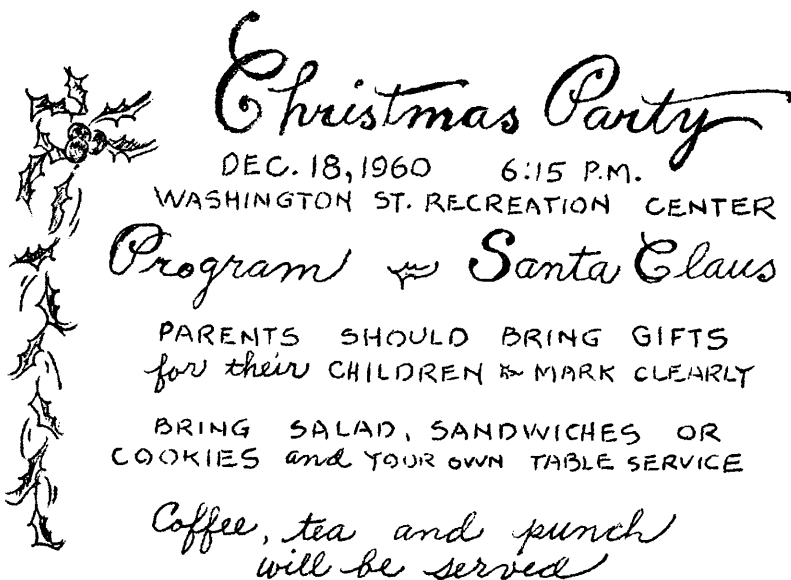 Christmas Party
DEC. 18, 1960 6:15 P.M.
WASHINGTON ST. RECREATION CENTER
Program Santa Claus
PARENTS SHOULD BRING GIFTS
for their CHILDREN & MARK CLEARLY
BRING SALAD, SANDWICHES OR
COOKIES and YOUR OWN TABLE SERVICE
Coffee, tea and punch
will be served